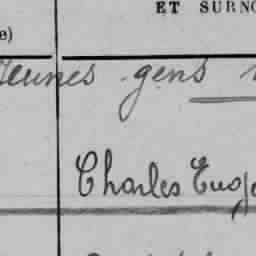 ET SURNO
e)
Jeunes gens
Charles Eug